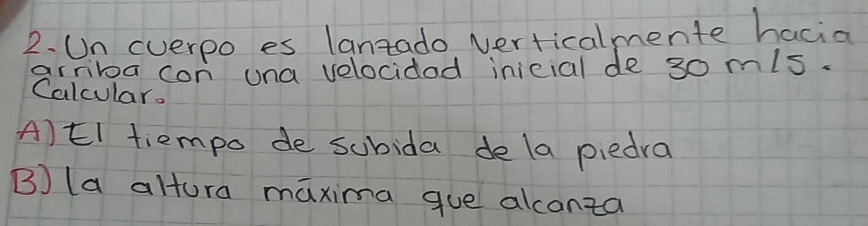 2. Un cuerpo es lanzado verticalmente hacia
arriba con una velocidad inicial de 30 m/s.
Calcular.
A) El tiempo de subida de la piedra
B) la altura máxima que alcanza